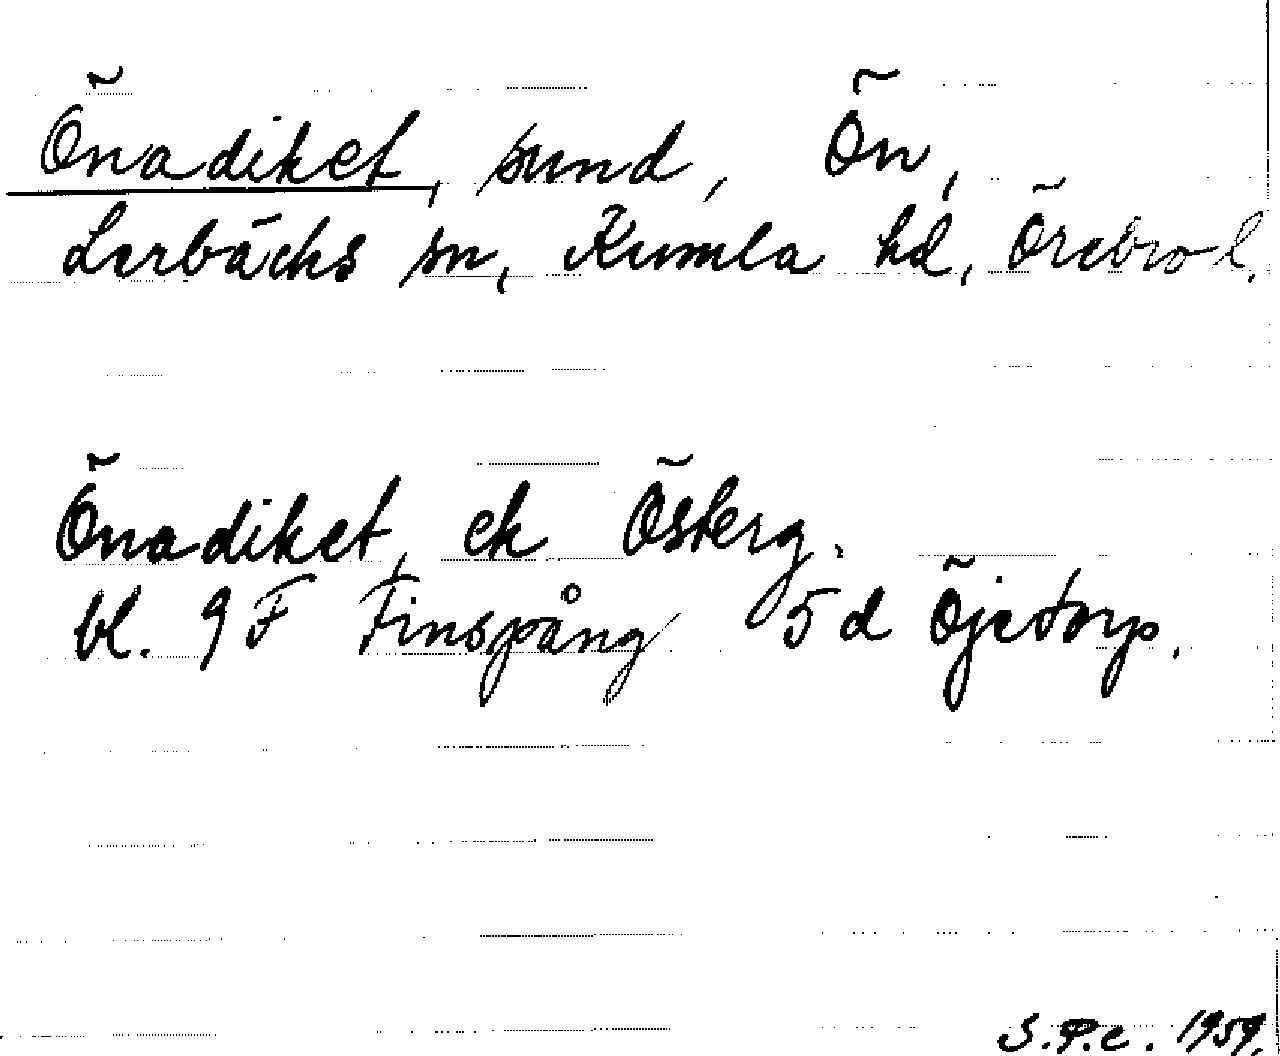 Önadiket, sund, Ön,
Lerbäcks sn, Kumla hd, Örebro l.
Önadiket, ek Österg.
bl. 9F Finspång 5d Öjetorp.
S.P.c. 1959.